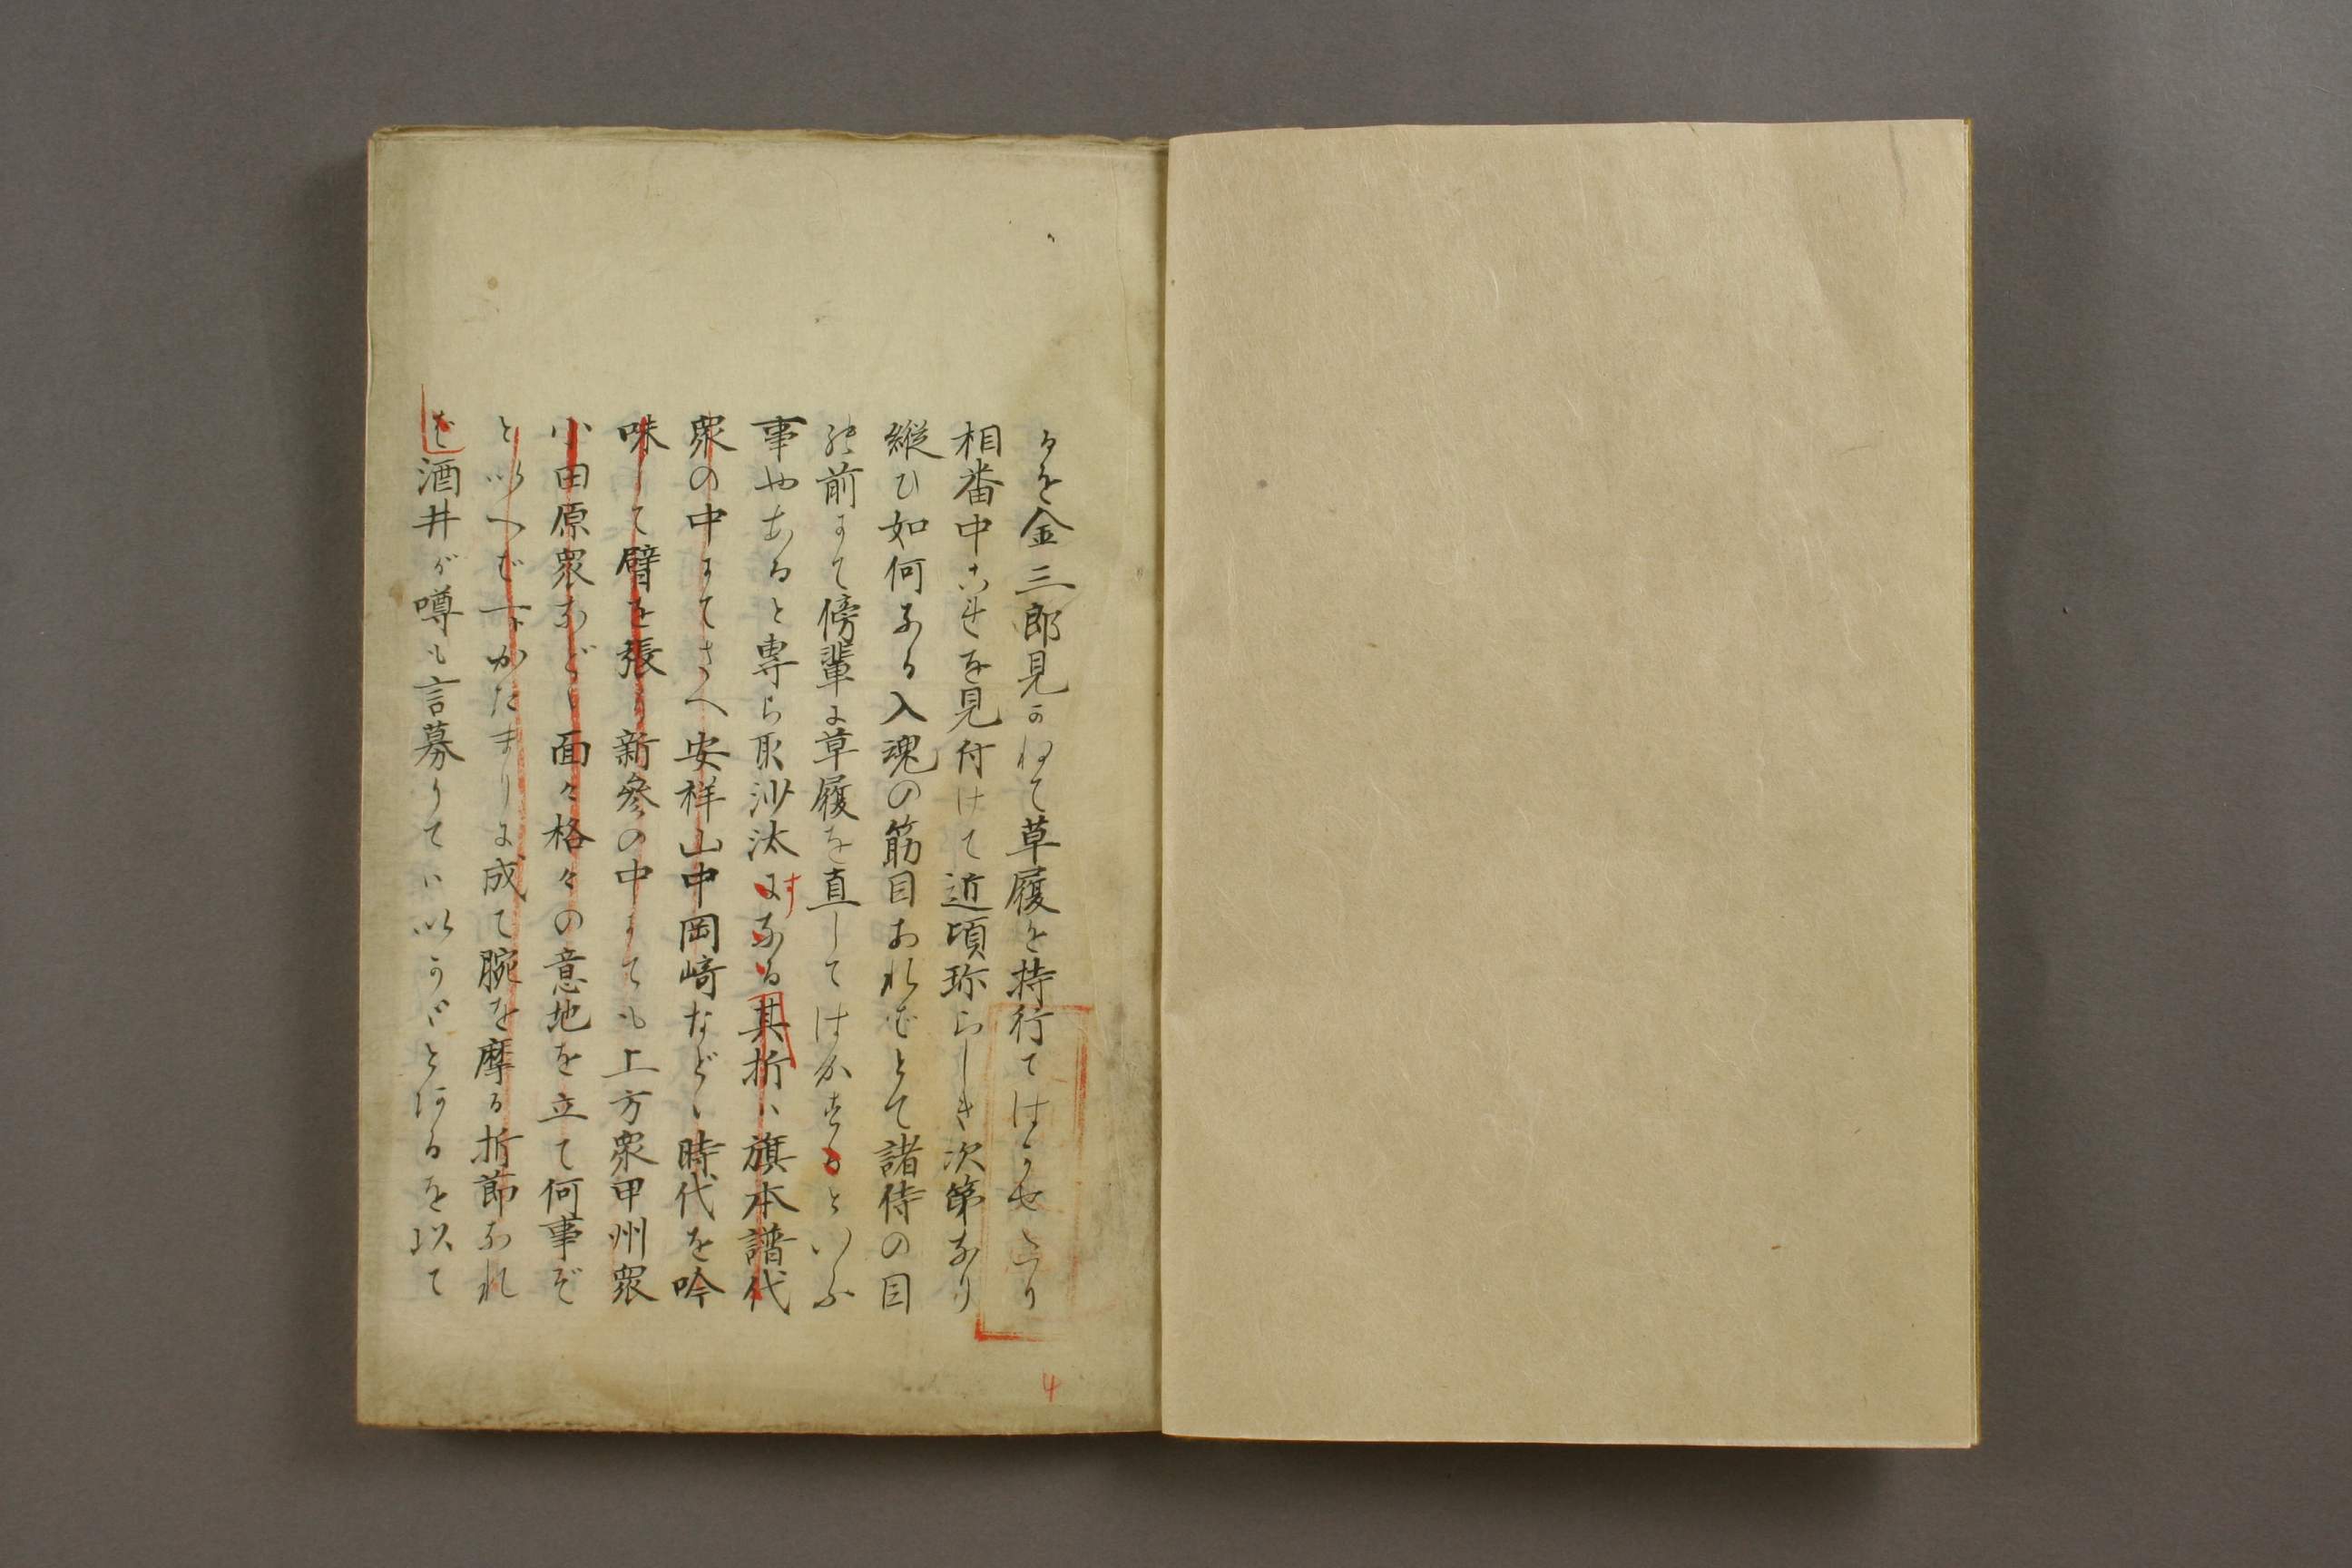 るを金三郎見かねて草履を持行てはかせたり
相番中これを見付けて近頃珍らしき次第なり
縦ひ如何なる入魂の筋目あればとて諸侍の目
の前にて傍輩に草履を直してはかするといふ
事やあると専ら取沙汰になる其折ハ旗本譜代
す
衆の中にてさへ安祥山中岡崎などゝ時代を吟
味して臂を張り新参の中にても上方衆甲州衆
小田原衆などゝ面々格々の意地を立て何事ぞ
といへば一トかたまりに成て腕を摩る折節なれ
ば酒井が噂も言募りてハいかゞとあるを以て
4